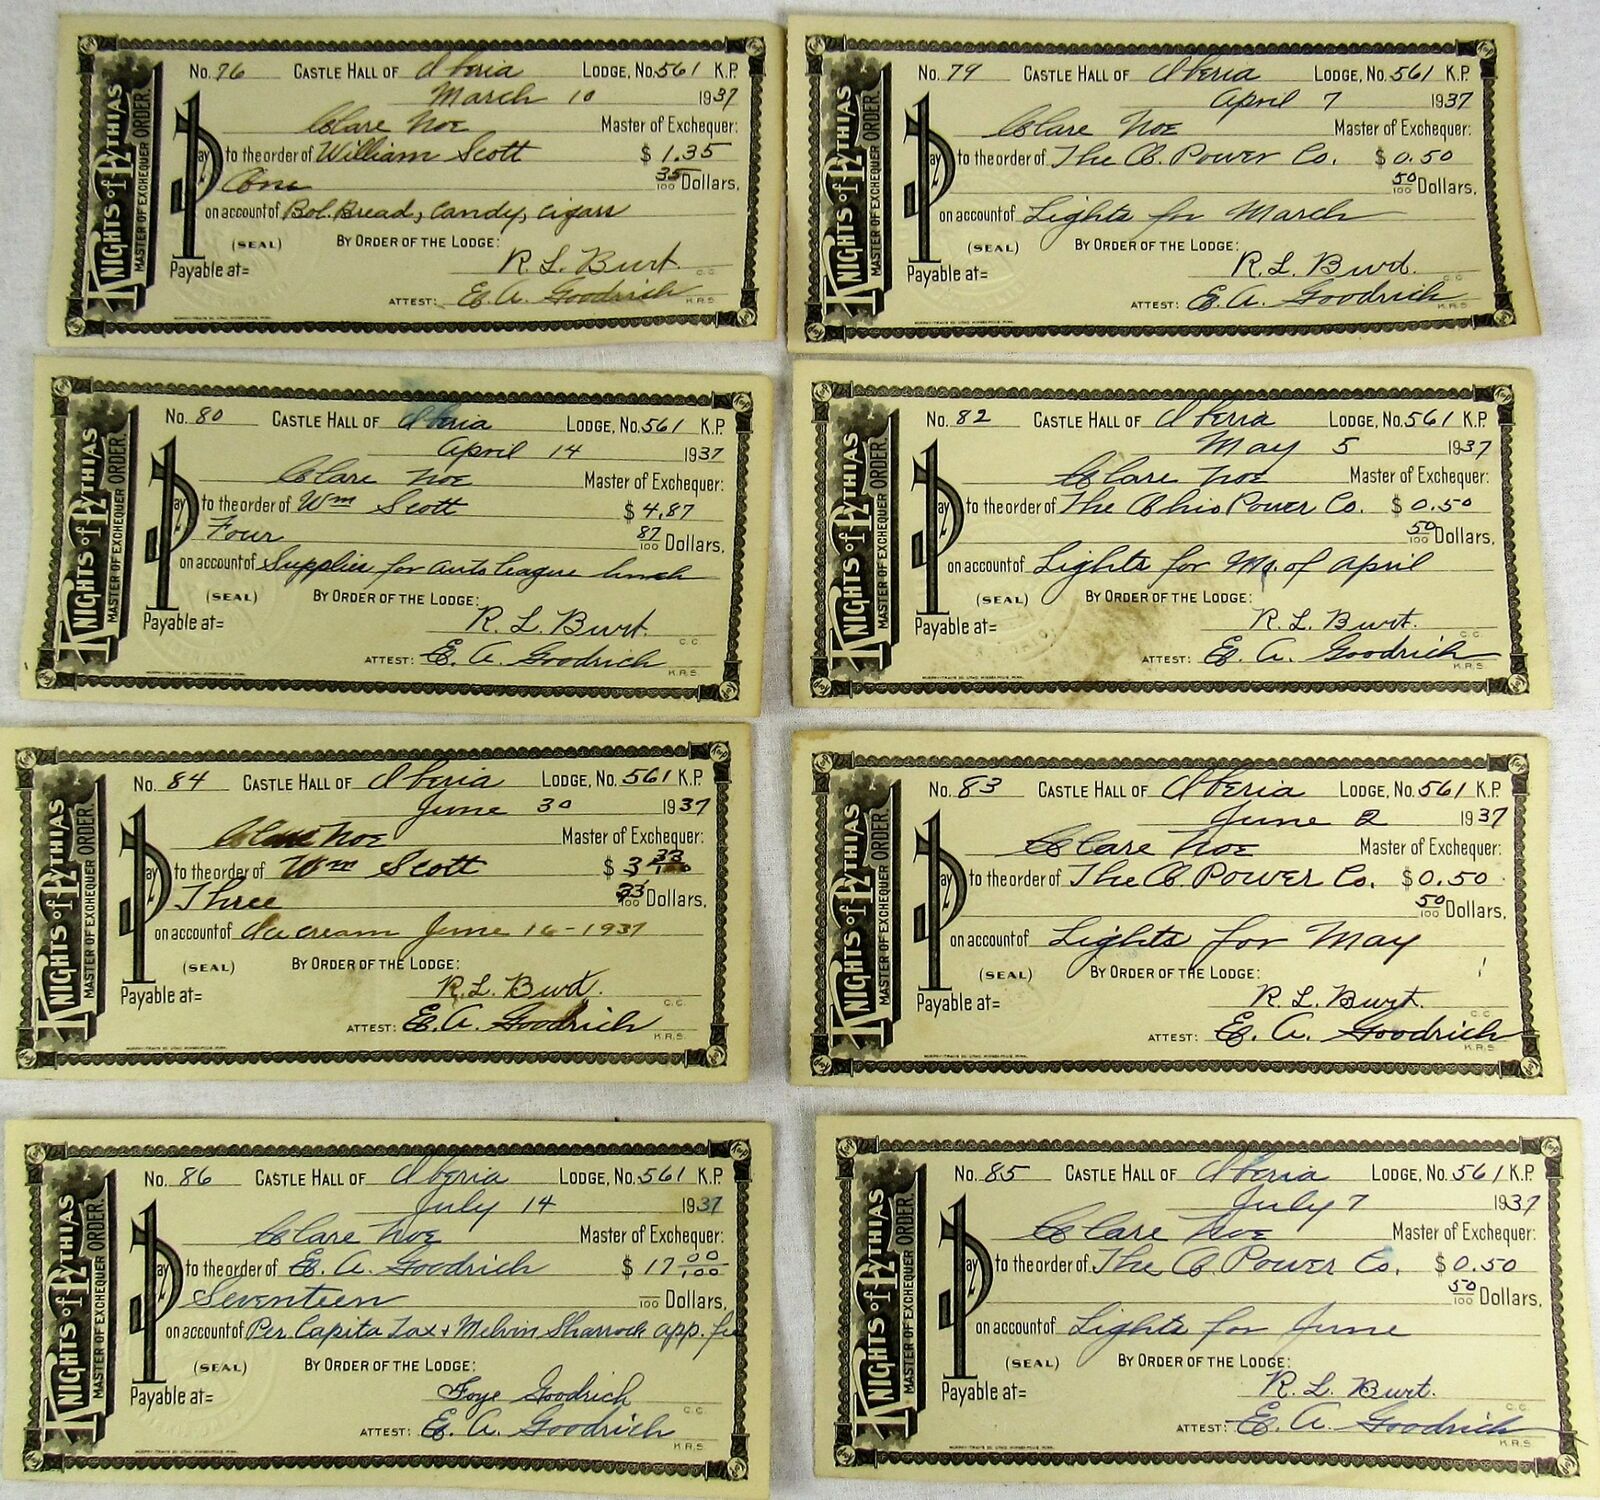 KNIGHTS OF PYTHIAS
MASTER OF EXCHEQUER ORDER.
No. 76 CASTLE HALL OF Iberia LODGE, No. 561 K.P.
March 10 1937
Clare Noe Master of Exchequer:
Pay to the order of William Scott $ 1.35
One 35/100 Dollars,
on account of Bol. Bread, Candy, Cigars
(SEAL) BY ORDER OF THE LODGE:
Payable at= R. L. Burt. C.C.
ATTEST: E. A. Goodrich K.R.S.
KNIGHTS OF PYTHIAS
MASTER OF EXCHEQUER ORDER.
No. 79 CASTLE HALL OF Iberia LODGE, No. 561 K.P.
April 7 1937
Clare Noe Master of Exchequer:
Pay to the order of The O. Power Co. $ 0.50
50/100 Dollars,
on account of Lights for March
(SEAL) BY ORDER OF THE LODGE:
Payable at= R. L. Burt. C.C.
ATTEST: E. A. Goodrich K.R.S.
KNIGHTS OF PYTHIAS
MASTER OF EXCHEQUER ORDER.
No. 80 CASTLE HALL OF Iberia LODGE, No. 561 K.P.
April 14 1937
Clare Noe Master of Exchequer:
Pay to the order of Wm Scott $ 4.87
Four 87/100 Dollars,
on account of Supplies for auto league lunch
(SEAL) BY ORDER OF THE LODGE:
Payable at= R. L. Burt. C.C.
ATTEST: E. A. Goodrich K.R.S.
KNIGHTS OF PYTHIAS
MASTER OF EXCHEQUER ORDER.
No. 82 CASTLE HALL OF Iberia LODGE, No. 561 K.P.
May 5 1937
Clare Noe Master of Exchequer:
Pay to the order of The Ohio Power Co. $ 0.50
50/100 Dollars,
on account of Lights for Mo. of April
(SEAL) BY ORDER OF THE LODGE:
Payable at= R. L. Burt. C.C.
ATTEST: E. A. Goodrich K.R.S.
KNIGHTS OF PYTHIAS
MASTER OF EXCHEQUER ORDER.
No. 84 CASTLE HALL OF Iberia LODGE, No. 561 K.P.
June 30 1937
Clare Noe Master of Exchequer:
Pay to the order of Wm Scott $ 3 33/100
Three 33/100 Dollars,
on account of Ice cream June 16-1937
(SEAL) BY ORDER OF THE LODGE:
Payable at= R. L. Burt. C.C.
ATTEST: E. A. Goodrich K.R.S.
KNIGHTS OF PYTHIAS
MASTER OF EXCHEQUER ORDER.
No. 83 CASTLE HALL OF Iberia LODGE, No. 561 K.P.
June 2 1937
Clare Noe Master of Exchequer:
Pay to the order of The O. Power Co. $ 0.50
50/100 Dollars,
on account of Lights for May
(SEAL) BY ORDER OF THE LODGE:
Payable at= R. L. Burt. C.C.
ATTEST: E. A. Goodrich K.R.S.
KNIGHTS OF PYTHIAS
MASTER OF EXCHEQUER ORDER.
No. 86 CASTLE HALL OF Iberia LODGE, No. 561 K.P.
July 14 1937
Clare Noe Master of Exchequer:
Pay to the order of E. A. Goodrich $ 17 00/100
Seventeen /100 Dollars,
on account of Per. Capita Tax + Melvin Sharrock app. fee
(SEAL) BY ORDER OF THE LODGE:
Payable at= Foye Goodrich C.C.
ATTEST: E. A. Goodrich K.R.S.
KNIGHTS OF PYTHIAS
MASTER OF EXCHEQUER ORDER.
No. 85 CASTLE HALL OF Iberia LODGE, No. 561 K.P.
July 7 1937
Clare Noe Master of Exchequer:
Pay to the order of The O. Power Co. $ 0.50
50/100 Dollars,
on account of Lights for June
(SEAL) BY ORDER OF THE LODGE:
Payable at= R. L. Burt. C.C.
ATTEST: E. A. Goodrich K.R.S.